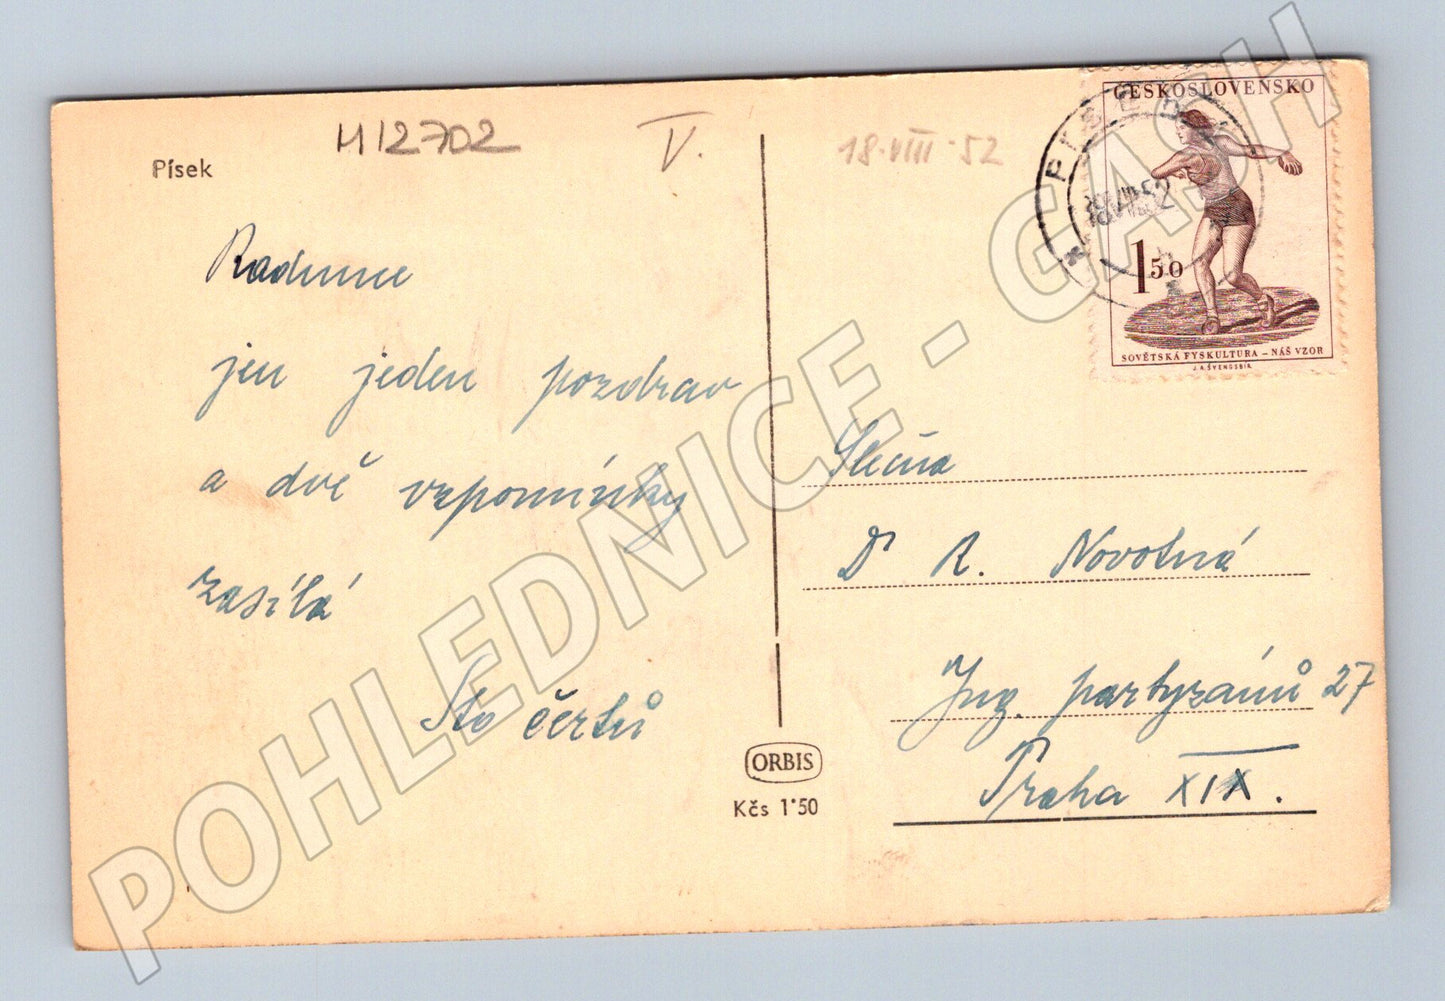 Písek
H12702
V.
18.VIII.52
PÍSEK
18.VIII.52
ČESKOSLOVENSKO
1 50
SOVĚTSKÁ FYSKULTURA – NÁŠ VZOR
J.A.ŠVENGSBÍR
jen jeden pozdrav
a dvě vzpomínky
zasílá
Sto čertů
Slečna
Dr R. Novotná
Ing. partyzánů 27
Praha XIX.
ORBIS
Kčs 1·50
POHLEDNICE - GASH